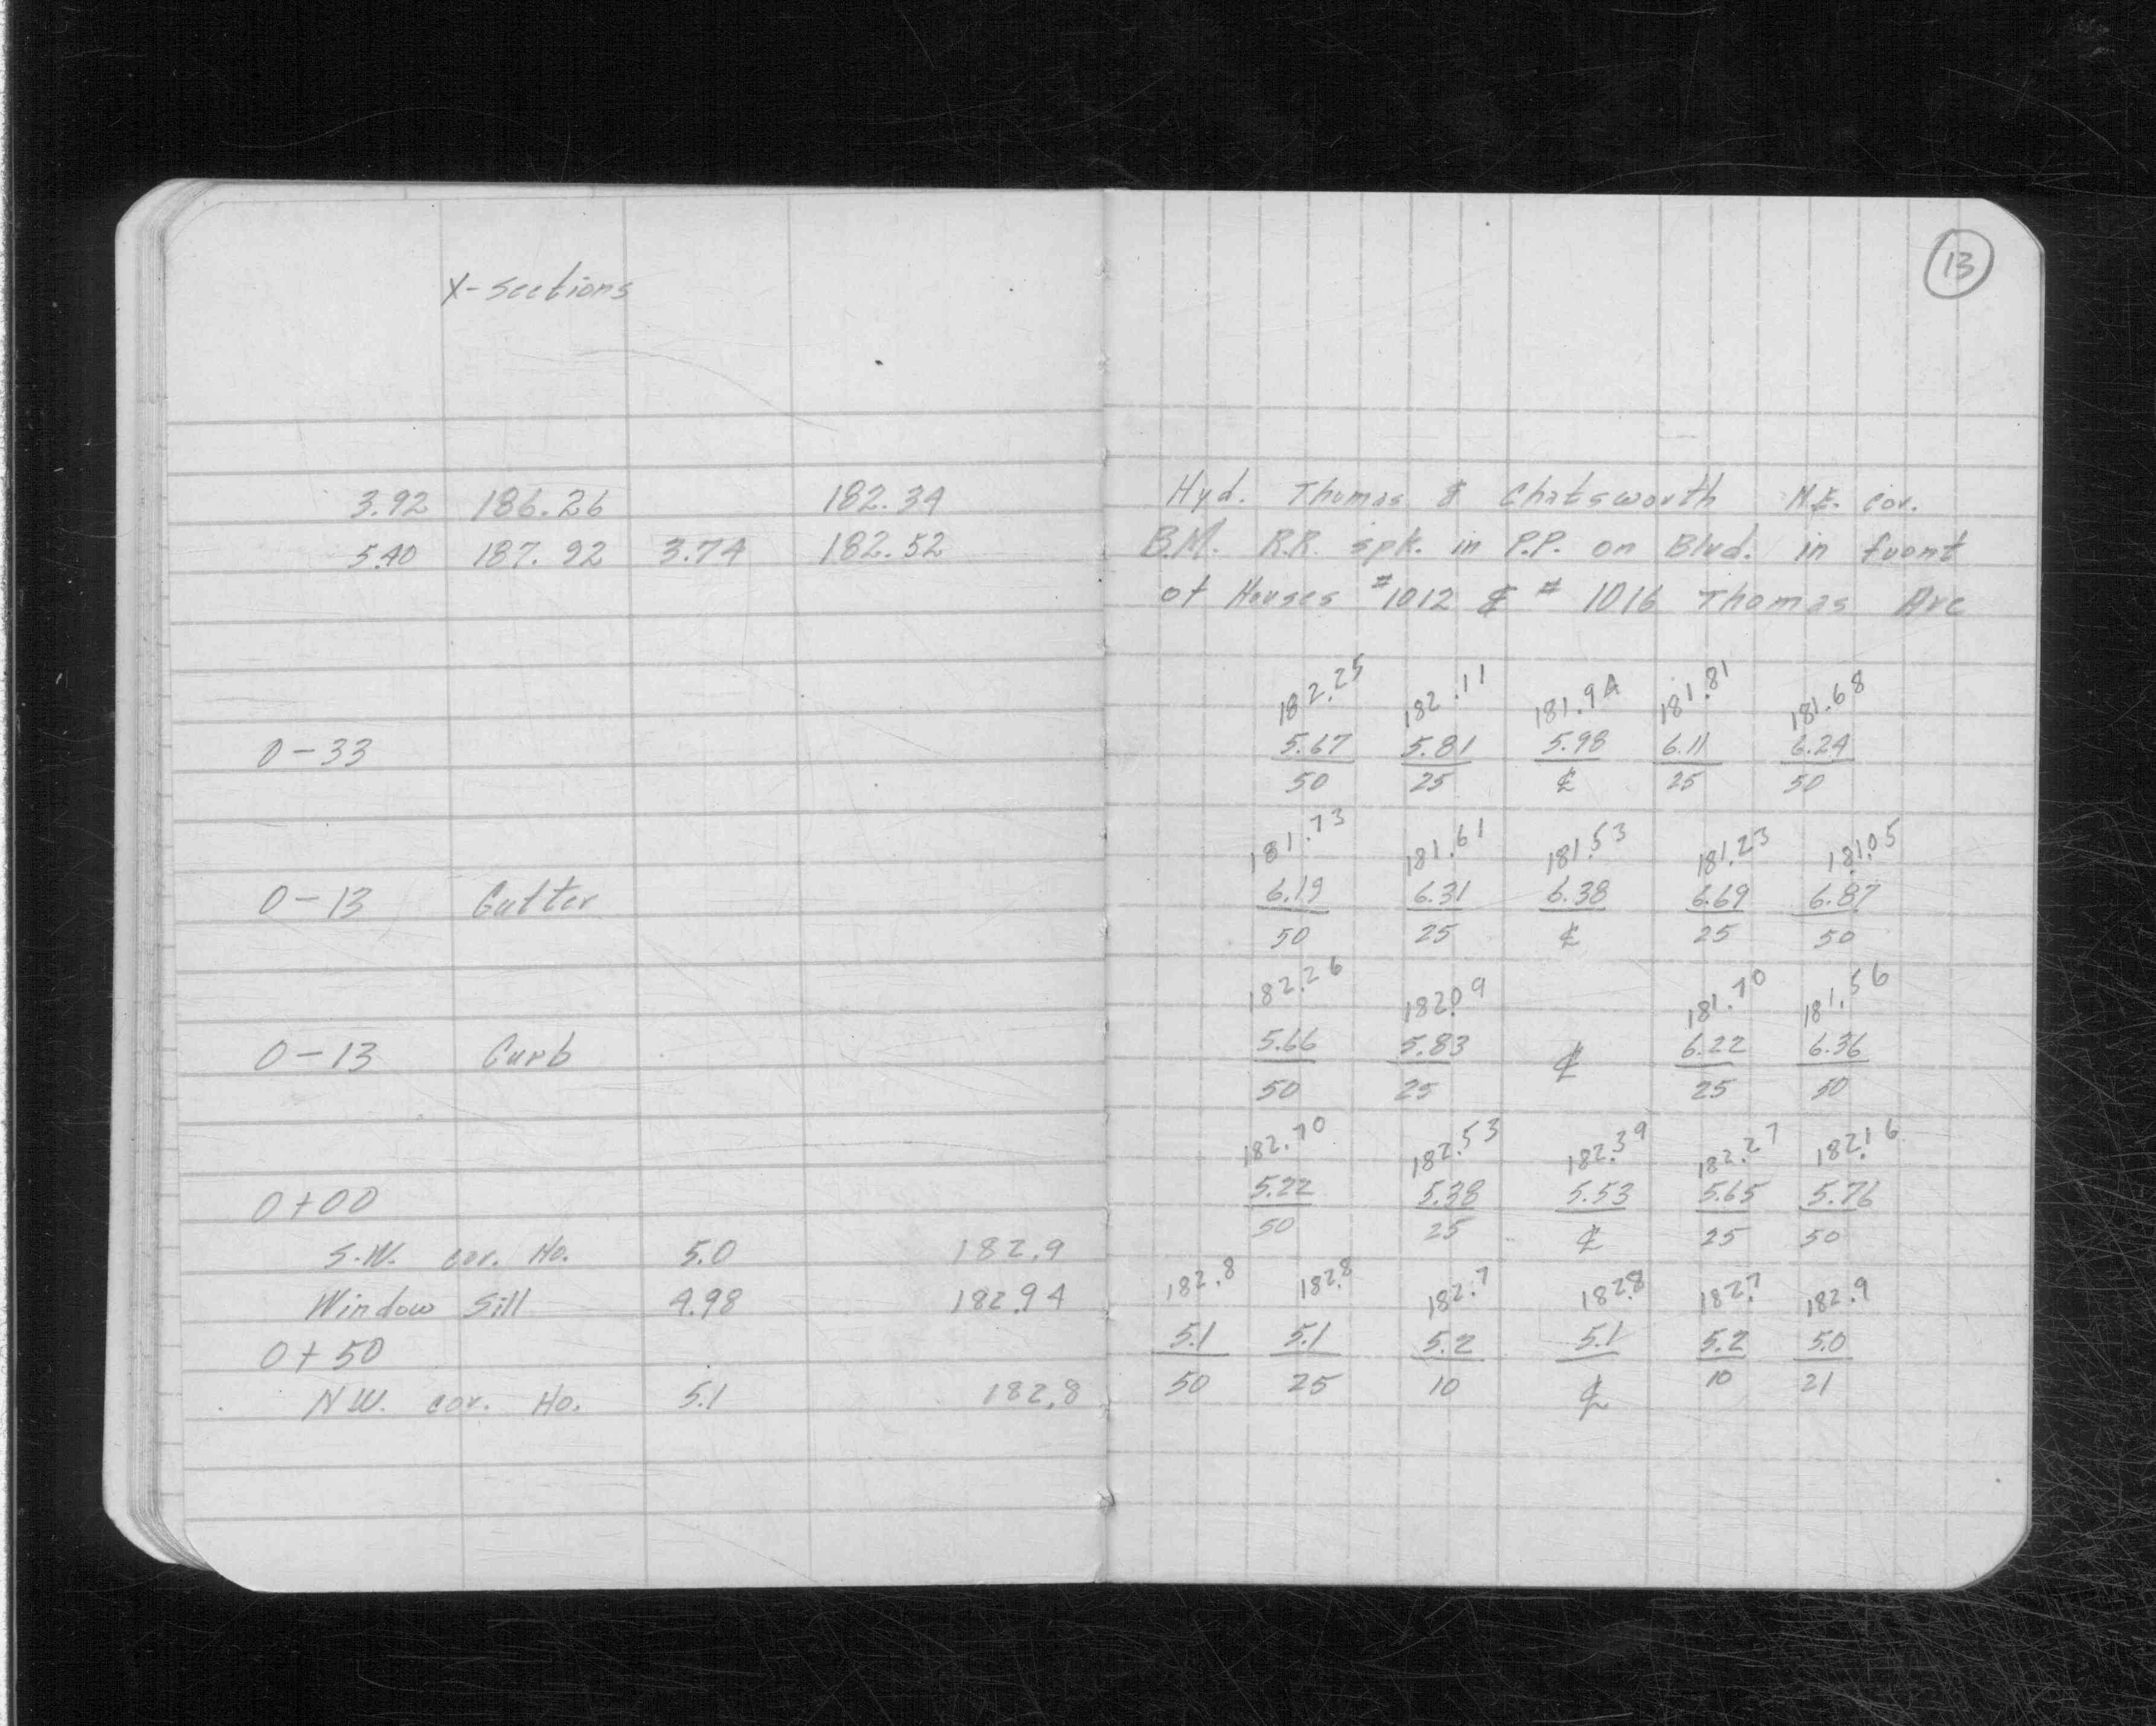 13
X-sections
3.92 186.26 182.34 Hyd. Thomas & Chatsworth N.E. cor.
5.40 187.92 3.74 182.52 B.M. R.R. spk. in P.P. on Blvd. in front
of Houses #1012 & #1016 Thomas Ave
182.25 182.11 181.94 181.81 181.68
0-33 5.67 5.81 5.98 6.11 6.24
50 25 ℄ 25 50
181.73 181.61 181.53 181.23 181.05
0-13 Gutter 6.19 6.31 6.38 6.69 6.87
50 25 ℄ 25 50
182.26 182.09 181.70 181.56
0-13 Curb 5.66 5.83 ℄ 6.22 6.36
50 25 25 50
182.70 182.53 182.39 182.27 182.16
0+00 5.22 5.38 5.53 5.65 5.76
50 25 ℄ 25 50
S.W. cor. Ho. 5.0 182.9
Window Sill 4.98 182.94 182.8 182.8 182.7 182.8 182.7 182.9
0+50 5.1 5.1 5.2 5.1 5.2 5.0
N.W. cor. Ho. 5.1 182.8 50 25 10 ℄ 10 21